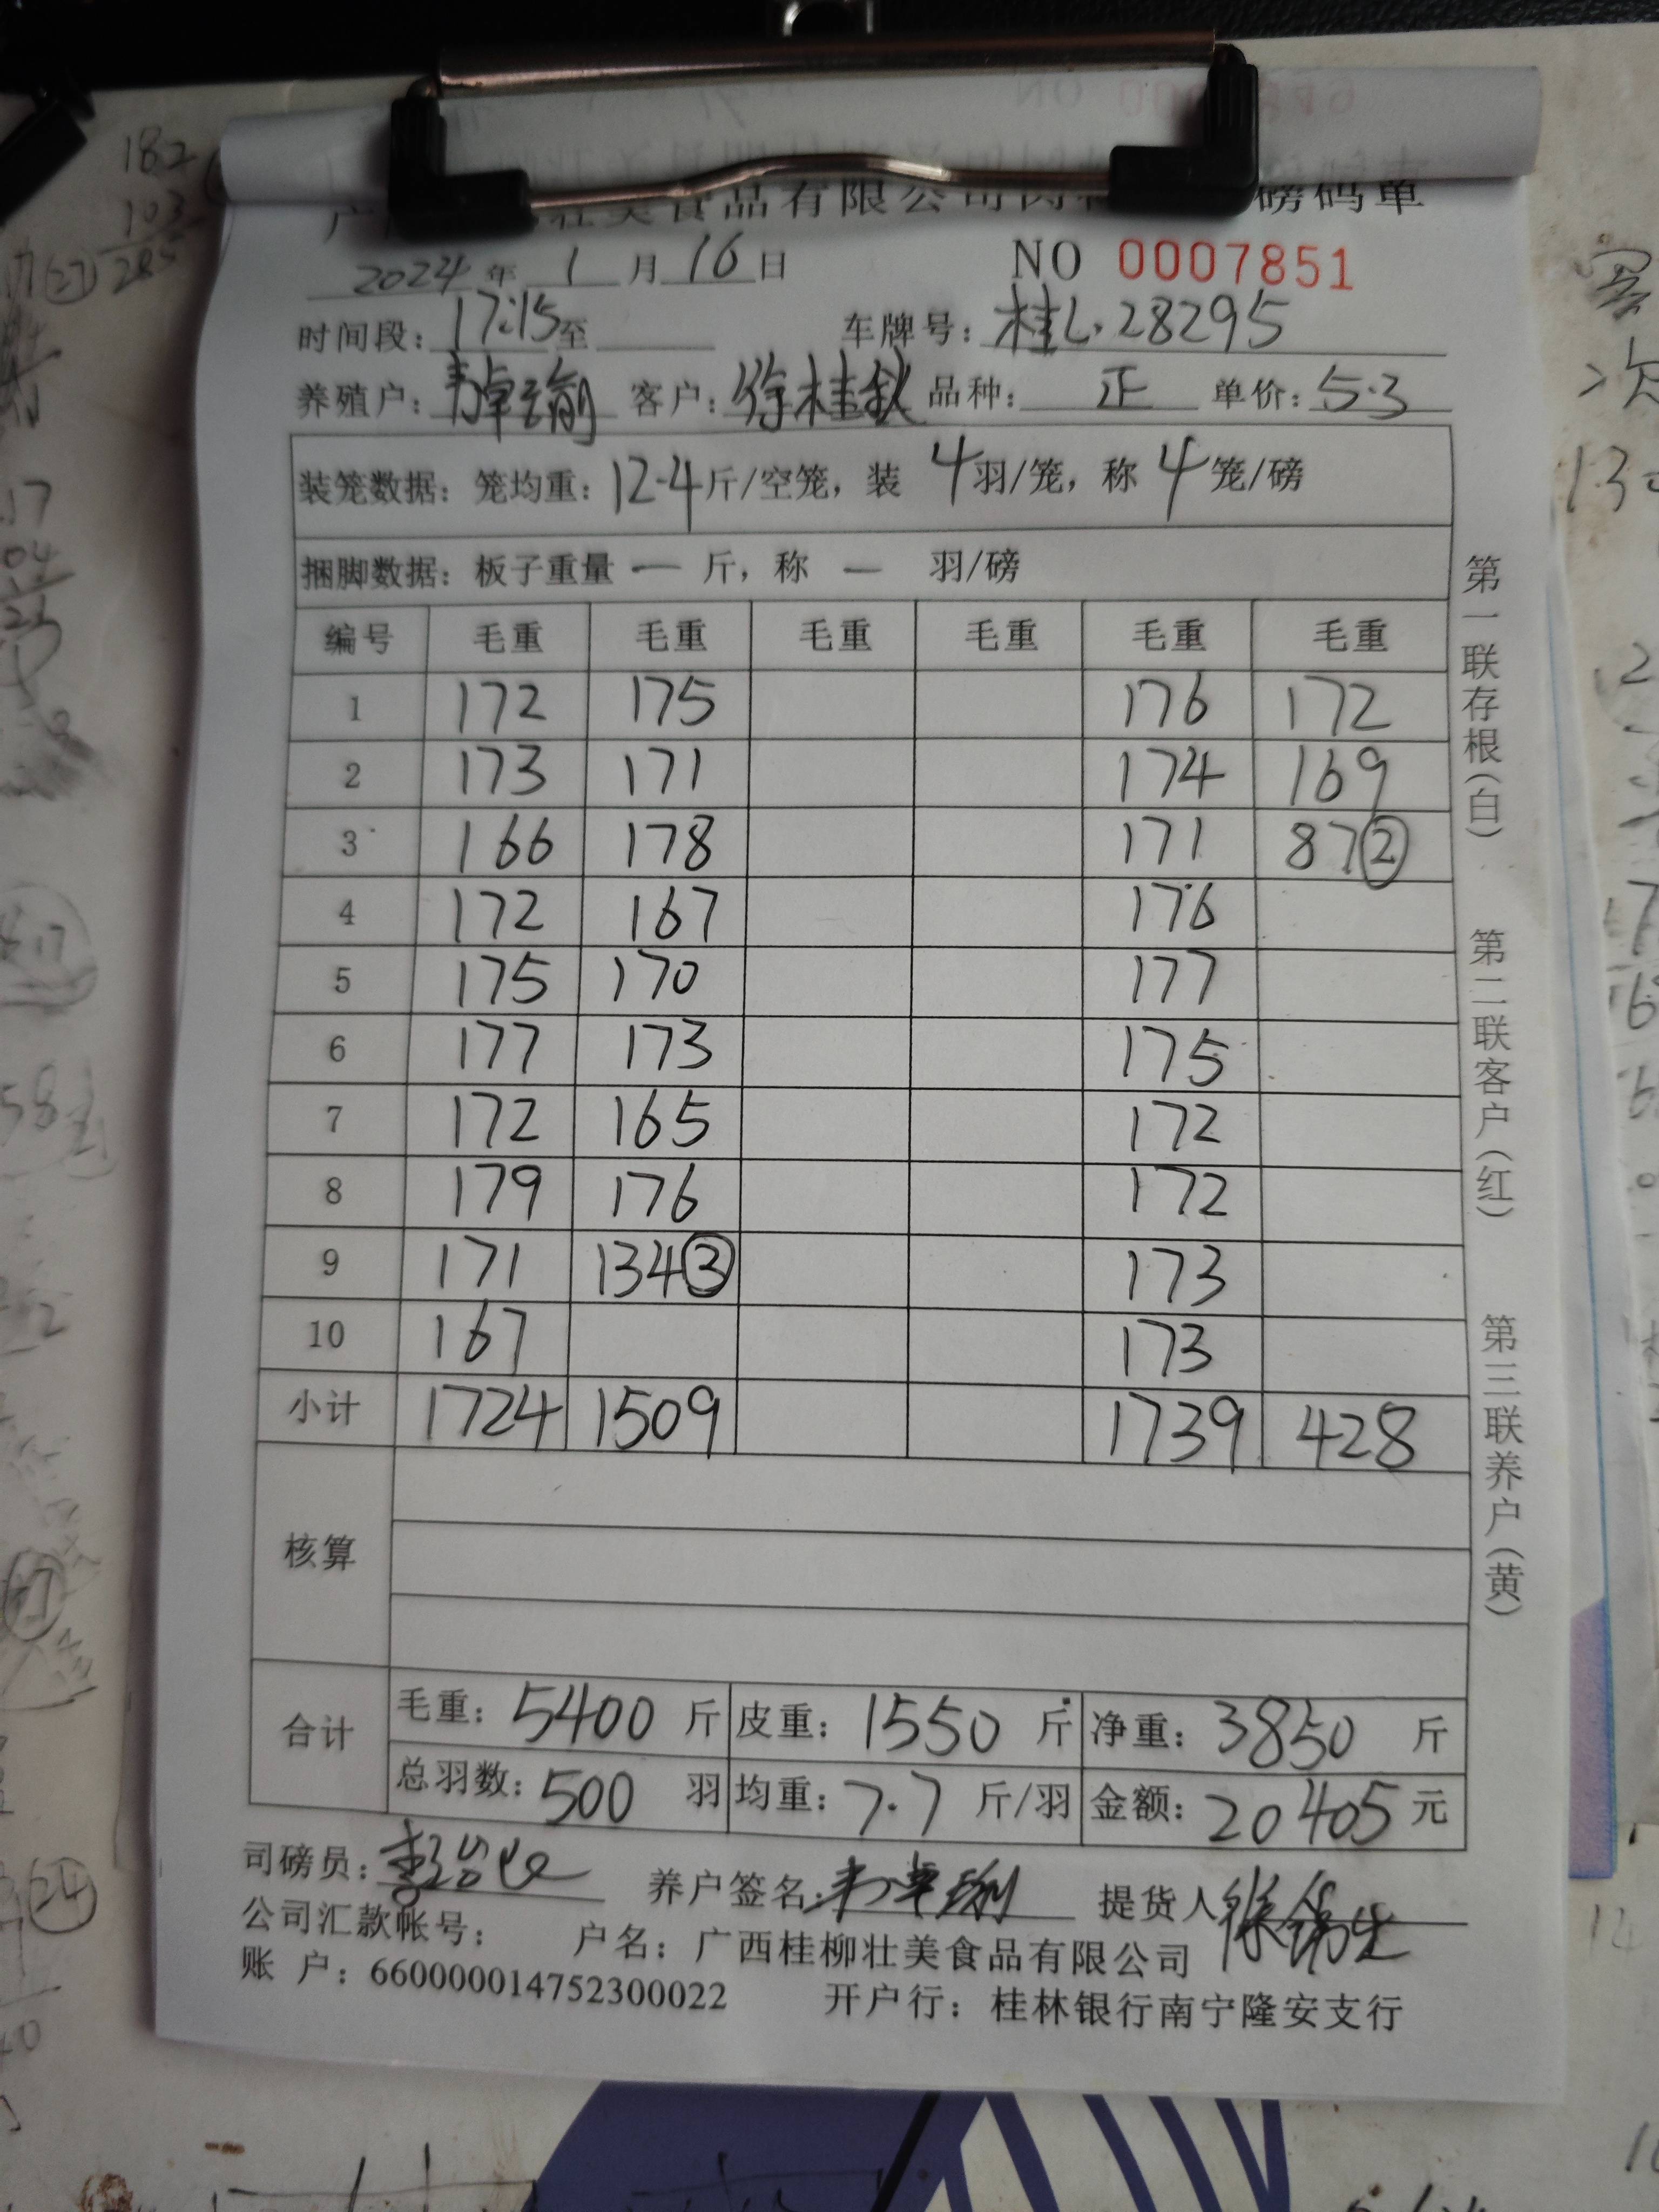 壮美食品有限公司 磅码单
2024年 1月 16日 NO 0007851
时间段: 17:15至 车牌号: 桂L·28295
养殖户: 韦卓瑜 客户: 徐桂秋 品种: 正 单价: 5.3
装笼数据: 笼均重: 12.4斤/空笼, 装 4羽/笼, 称 4笼/磅
捆脚数据: 板子重量 — 斤, 称 — 羽/磅
编号 毛重 毛重 毛重 毛重 毛重 毛重
1 172 175 176 172
2 173 171 174 169
3 166 178 171 87②
4 172 167 176
5 175 170 177
6 177 173 175
7 172 165 172
8 179 176 172
9 171 134③ 173
10 167 173
小计 1724 1509 1739 428
核算
合计 毛重: 5400 斤 皮重: 1550 斤 净重: 3850 斤
总羽数: 500 羽 均重: 7.7 斤/羽 金额: 20405 元
司磅员: 养户签名: 提货人
公司汇款帐号: 户名: 广西桂柳壮美食品有限公司
账 户: 660000014752300022 开户行: 桂林银行南宁隆安支行
第一联存根(白) 第二联客户(红) 第三联养户(黄)
182
103
285